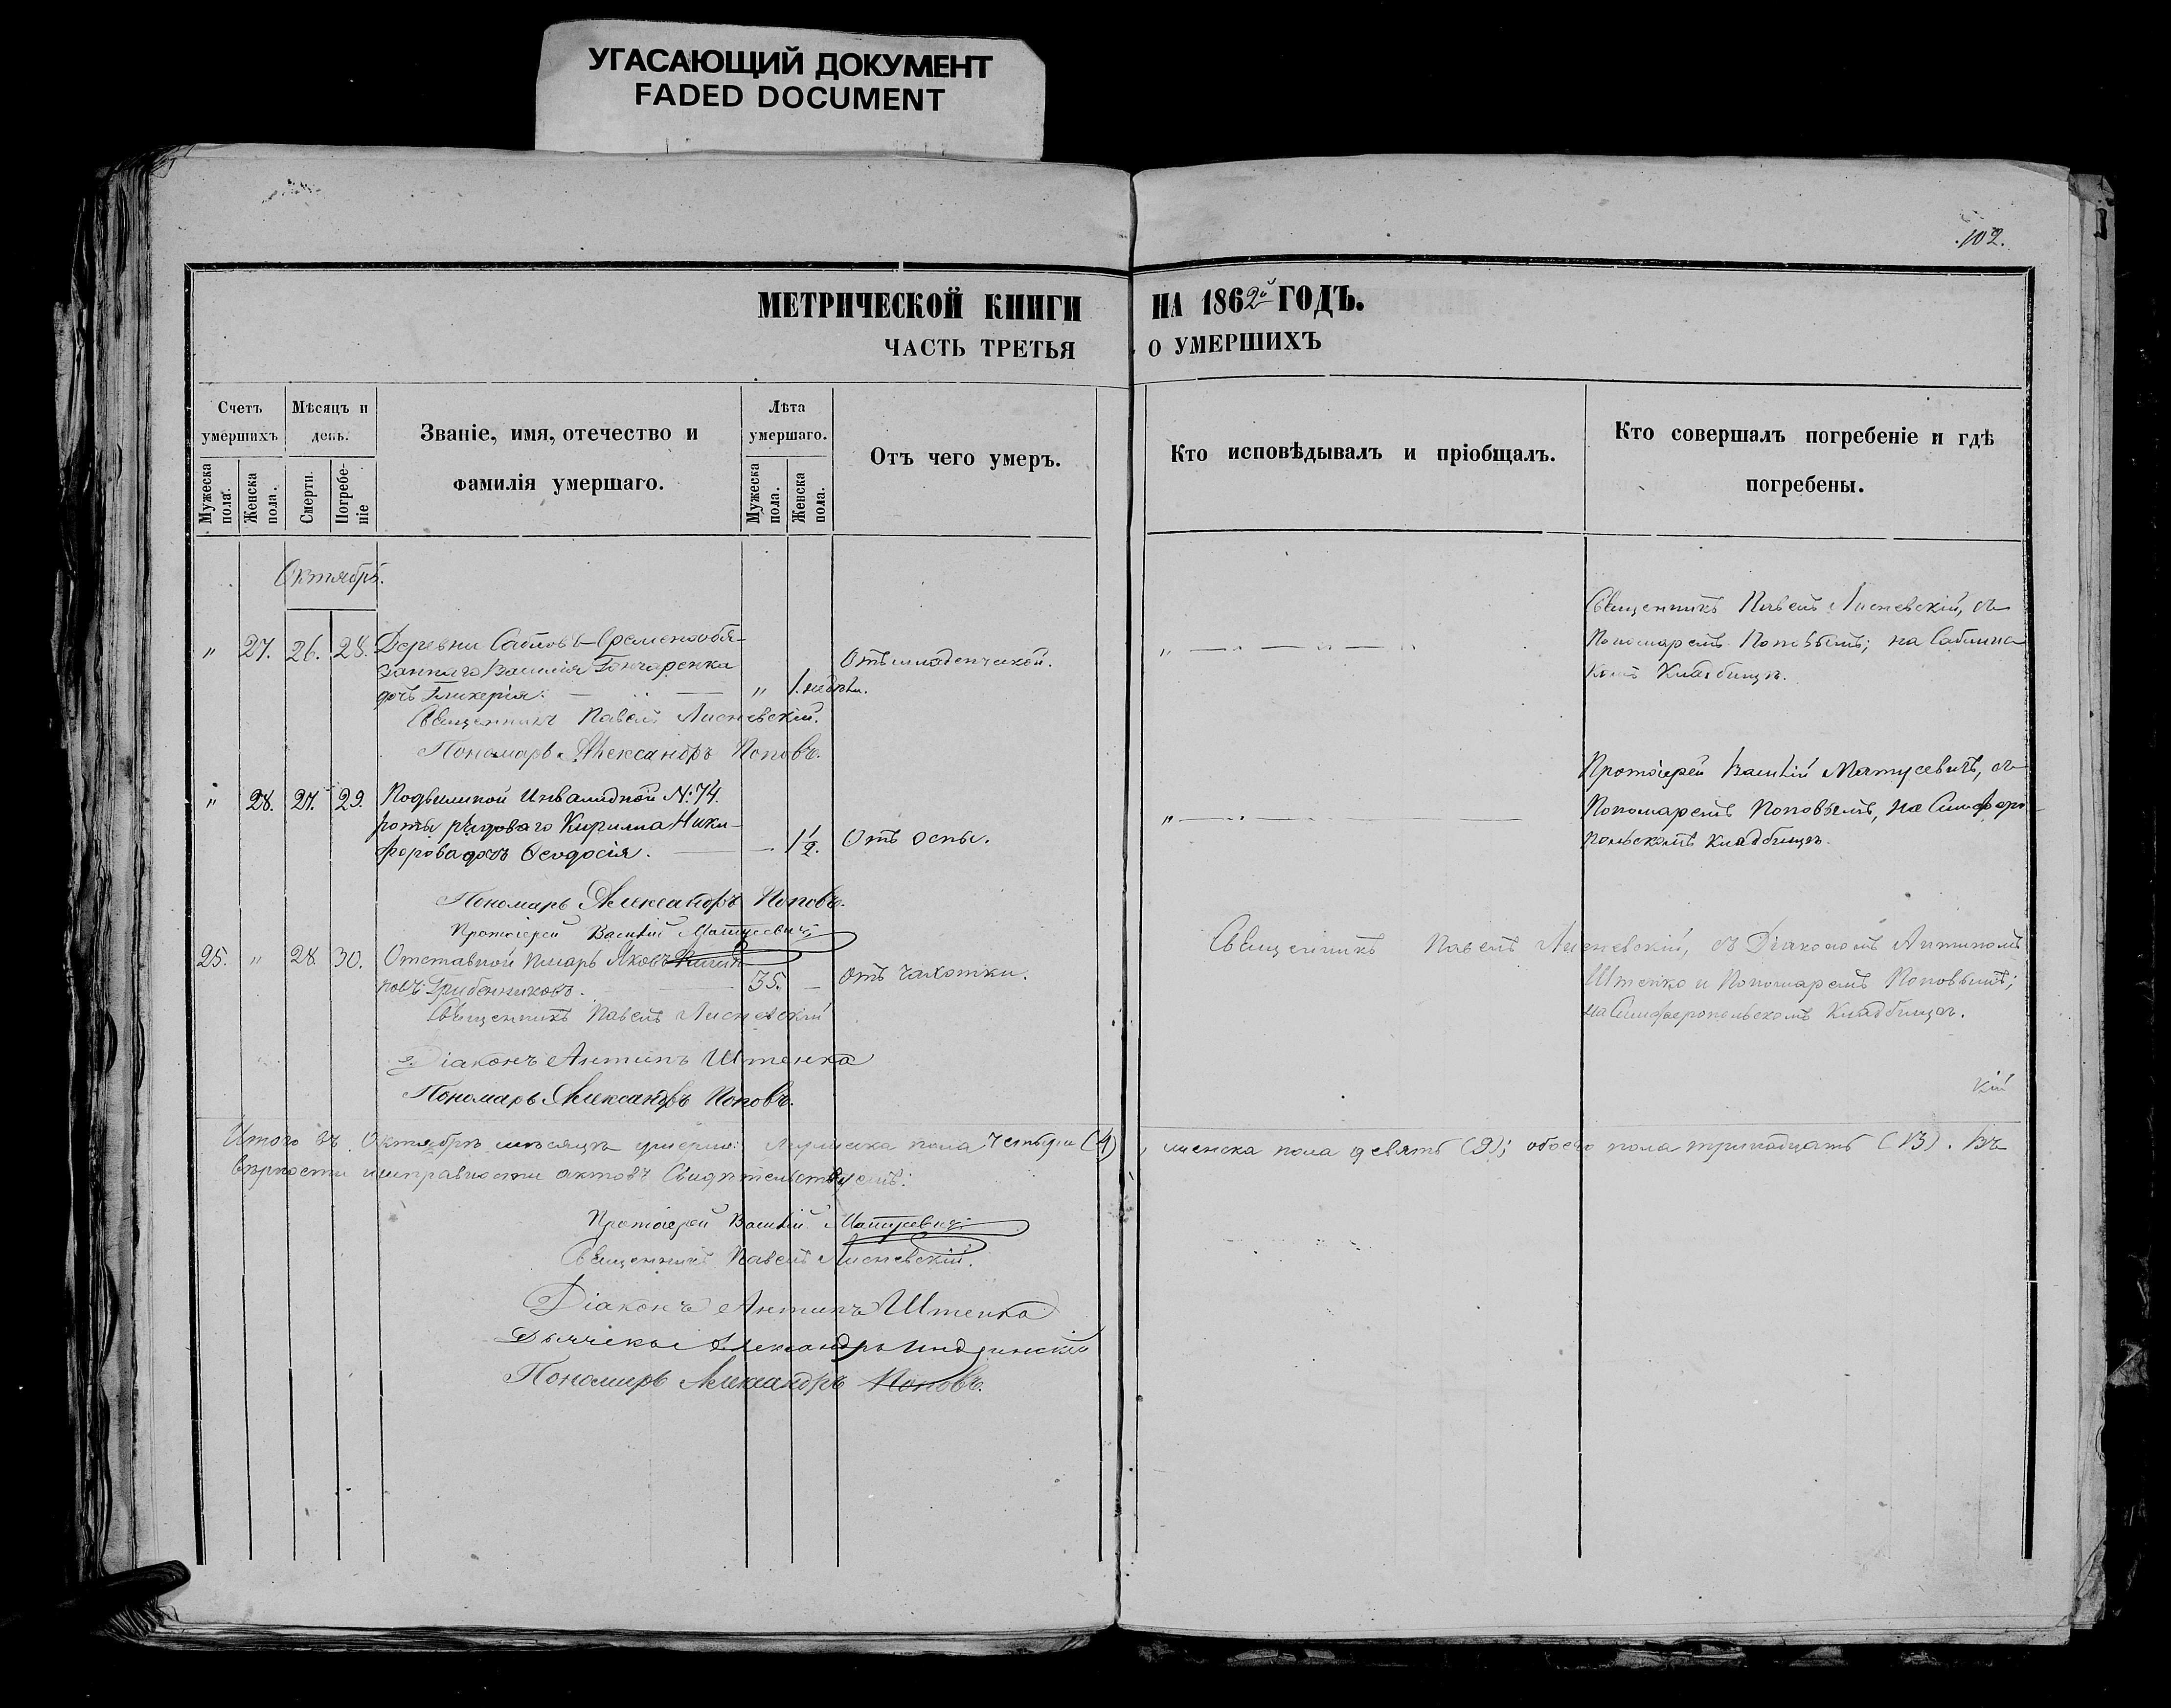 УГАСАЮЩИЙ ДОКУМЕНТ
FADED DOCUMENT
102.
МЕТРИЧЕСКОЙ КНИГИ НА 1862й ГОДЪ.
ЧАСТЬ ТРЕТЬЯ О УМЕРШИХЪ
Счетъ умершихъ
Мѣсяцъ и день.
Званіе, имя, отечество и фамилія умершаго.
Лѣта умершаго.
Отъ чего умеръ.
Кто исповѣдывалъ и пріобщалъ.
Кто совершалъ погребеніе и гдѣ погребены.
Мужеска пола.
Женска пола.
Смерти.
Погребеніе
Мужеска пола.
Женска пола.
Октябрь.
" 27. 26. 28.
Деревни Сабловъ Временнообя-
заннаго Василія Гончаренка
дочь Гликерія.
" 1. недѣли.
Отъ младенческой.
Священникъ Павелъ Лисневскій, съ
Пономаремъ Поповымъ; на Саблинс-
комъ Кладбищѣ.
Священникъ Павелъ Лисневскій.
Пономарь Александръ Поповъ.
" 28. 27. 29.
Подвижной Инвалидной №: 74.
роты рядоваго Кирилла Ники-
форова дочь Ѳеодосія.
1½.
Отъ оспы.
Протоіерей Василій Матусевичъ, съ
Пономаремъ Поповымъ, на Симферо-
польскомъ кладбищѣ.
Пономарь Александръ Поповъ.
Протоіерей Василій Матусевичъ
25. " 28. 30.
Отставной Писарь Яковъ
повъ Грибенниковъ.
35.
Отъ чахотки.
Священникъ Павелъ Лисневскій, съ Діакономъ Антипомъ
Штенко и Пономаремъ Поповымъ;
на Симферопольскомъ Кладбищѣ.
Священникъ Павелъ Лисневскій
Діаконъ Антипъ Штенко
Пономарь Александръ Поповъ.
кій
Итого въ Октябрѣ мѣсяцѣ умерло: Мужеска пола четыре (4), женска пола девять (9); обоего пола тринадцать (13). Въ
вѣрности исправности актовъ Свидѣтельствуемъ:
Протоіерей Василій Матусевичъ
Священникъ Павелъ Лисневскій.
Діаконъ Антипъ Штенко
Дьячекъ Александръ
Пономарь Александръ Поповъ.